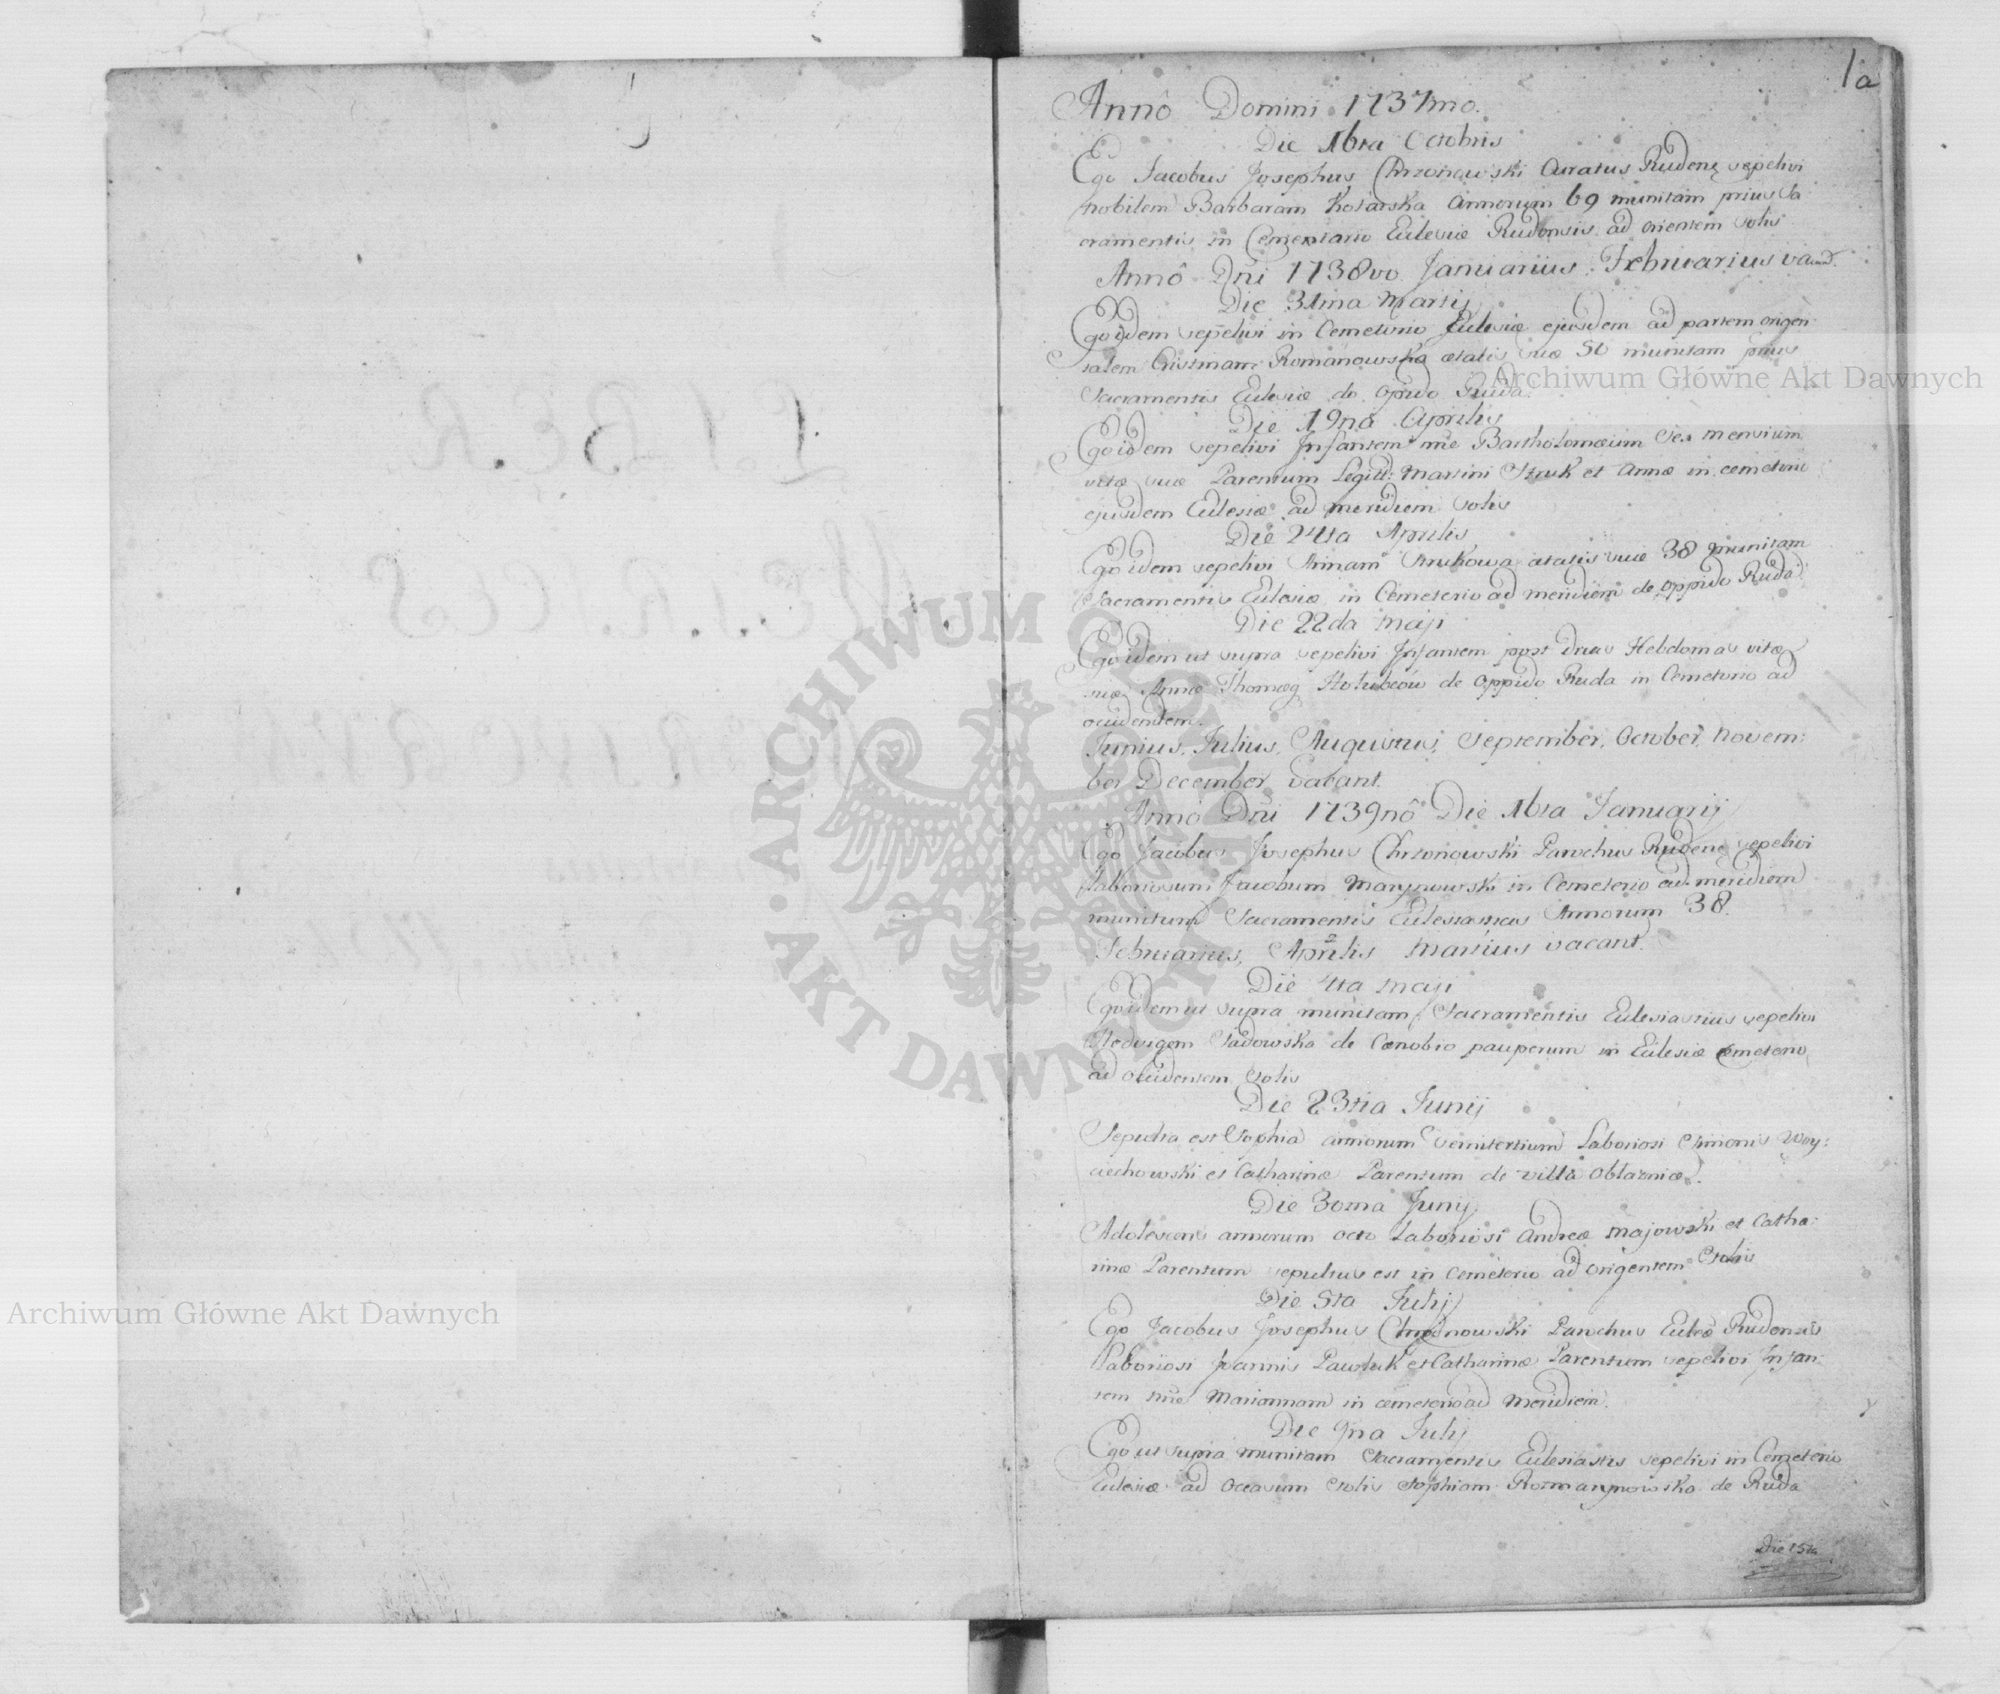 1a
Annô Domini 1737mo.
Die 16ta Octobris
Ego Jacobus Josephus Chrzonowski Curatus Rudenę sepelivi
nobilem Barbaram Kotarska Annorum 69 munitam prius Sa
cramentis in Cementario Eclesiæ Rudensis ad orientem solis
Annô Dñi 1738vo Januarius Februarius
Die 31ma Martij
Ego idem sepelivi in Cemeterio Eclesiæ ejusdem ad partem origen
talem Romanowska ætatis suæ munitam prius
Sacramentis Eclesiæ de Opido Ruda.
Die 19na Aprilis
Ego idem sepelivi Infantem nñe Bartholomæum Sex mensium
vitæ suæ Parentum Legitt: Martini Struk et Annæ in cemeterio
ejusdem Eclesiæ ad meridiem solis
Die 24ta Aprilis
Ego idem sepelivi Annam Strukowa ætatis suæ 38 munitam
Sacramentis Eclesiæ in Cemeterio ad meridiem de oppido Ruda
Die 22da Maji
Ego idem ut supra sepelivi Infantem post duas Hebdomas vitæ
suæ Annæ de Oppido Ruda in Cemeterio ad
ocidentem.
Junius, Julius, Augustus, September, October, Novem:
ber December vacant.
Anno Dñi 1739nô Die 16ta Januarij
Ego Jacobus Josephus Chrzonowski Parochus Rudenę sepelivi
laboriosum Jacobum Marynowski in Cemeterio ad meridiem
munitum Sacramentis Eclesiasticis Annorum 38.
Februarius, Aprilis Martius vacant.
Die 4ta Maji
Ego idem ut supra munitam Sacramentis Eclesiasticis sepelivi
Hedvigem Sadowska de Cœnobio pauperum in Eclesiæ cemeterio
ad ocidentem Solis
Die 23tia Junij
Sepulta est Sophia annorum semitertium Laboriosi Simonis Woy:
ciechowski et Catharinæ Parentum de villa Oblaznicæ.
Die 30ma Junij
Adolescens annorum octo Laboriosi Andreæ Majowski et Catha:
rinæ Parentum sepultus est in cemeterio ad origentem Solis
Die 5ta Julij
Ego Jacobus Josephus Chrzonowski Parochus Eclæ Rudensis
Laboriosi Joannis Pawluk et Catharinæ Parentum sepelivi Infan:
tem nñe Mariannam in cemeterio ad Meridiem.
Die 9na Julij
Ego ut supra munitam Sacramentis Eclesiastis sepelivi in Cemeterio
Eclesiæ ad Occasum Solis Sophiam Romanynowska de Ruda
Die 15ta
Archiwum Główne Akt Dawnych
Archiwum Główne Akt Dawnych
ARCHIWUM GŁÓWNE AKT DAWNYCH